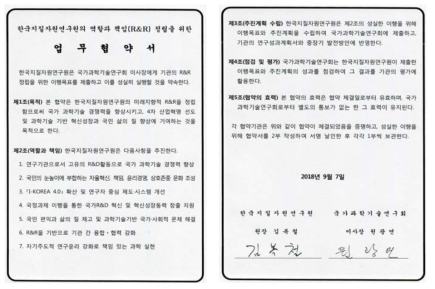 한국지질자원연구원의 역할과 책임(R&R) 정립을 위한
업 무 협 약 서
한국지질자원연구원은 국가과학기술연구회 이사장에게 기관의 R&R
정립을 위한 이행목표를 제출하고 이를 성실히 실행할 것을 약속한다.
제1조(목적) 본 협약은 한국지질자원연구원의 미래지향적 R&R을 정립
함으로써 국가 과학기술 경쟁력을 향상시키고, 4차 산업혁명 선도
및 과학기술 기반 혁신성장과 국민 삶의 질 향상에 기여하는 것을
목적으로 한다.
제2조(역할과 책임) 한국지질자원연구원은 다음사항을 추진한다.
1. 연구기관으로서 고유의 R&D활동으로 국가 과학기술 경쟁력 향상
2. 국민의 눈높이에 부합하는 자율혁신, 책임, 윤리경영, 상호존중 문화 조성
3. 「I-KOREA 4.0」 확산 및 연구자 중심 제도·시스템 개선
4. 국정과제 이행을 통한 국가R&D 혁신 및 혁신성장동력 창출 지원
5. 국민 편익과 삶의 질 제고 및 과학기술기반 국가·사회적 문제 해결
6. R&R을 기반으로 기관 간 융합·협력 강화
7. 자기주도적 연구윤리 강화로 책임 있는 과학 실현
제3조(추진계획 수립) 한국지질자원연구원은 제2조의 성실한 이행을 위해
이행목표와 추진계획을 수립하여 국가과학기술연구회에 제출하고,
기관의 연구성과계획서와 중장기 발전방안에 반영한다.
제4조(점검 및 평가) 국가과학기술연구회는 한국지질자원연구원이 제출한
이행목표와 추진계획의 성과를 점검하여 그 결과를 기관의 평가에
활용한다.
제5조(협약의 효력) 본 협약의 효력은 협약 체결일로부터 유효하며, 국가
과학기술연구회로부터 별도의 통보가 없는 한 그 효력이 유지된다.
각 협약기관은 위와 같이 협약이 체결되었음을 증명하고, 성실한 이행을
위해 협약서를 2부 작성하여 서명 날인한 후 각각 1부씩 보관한다.
2018년 9월 7일
한국지질자원연구원 국가과학기술연구회
원장 김복철 이사장 원광연
김복철 원광연